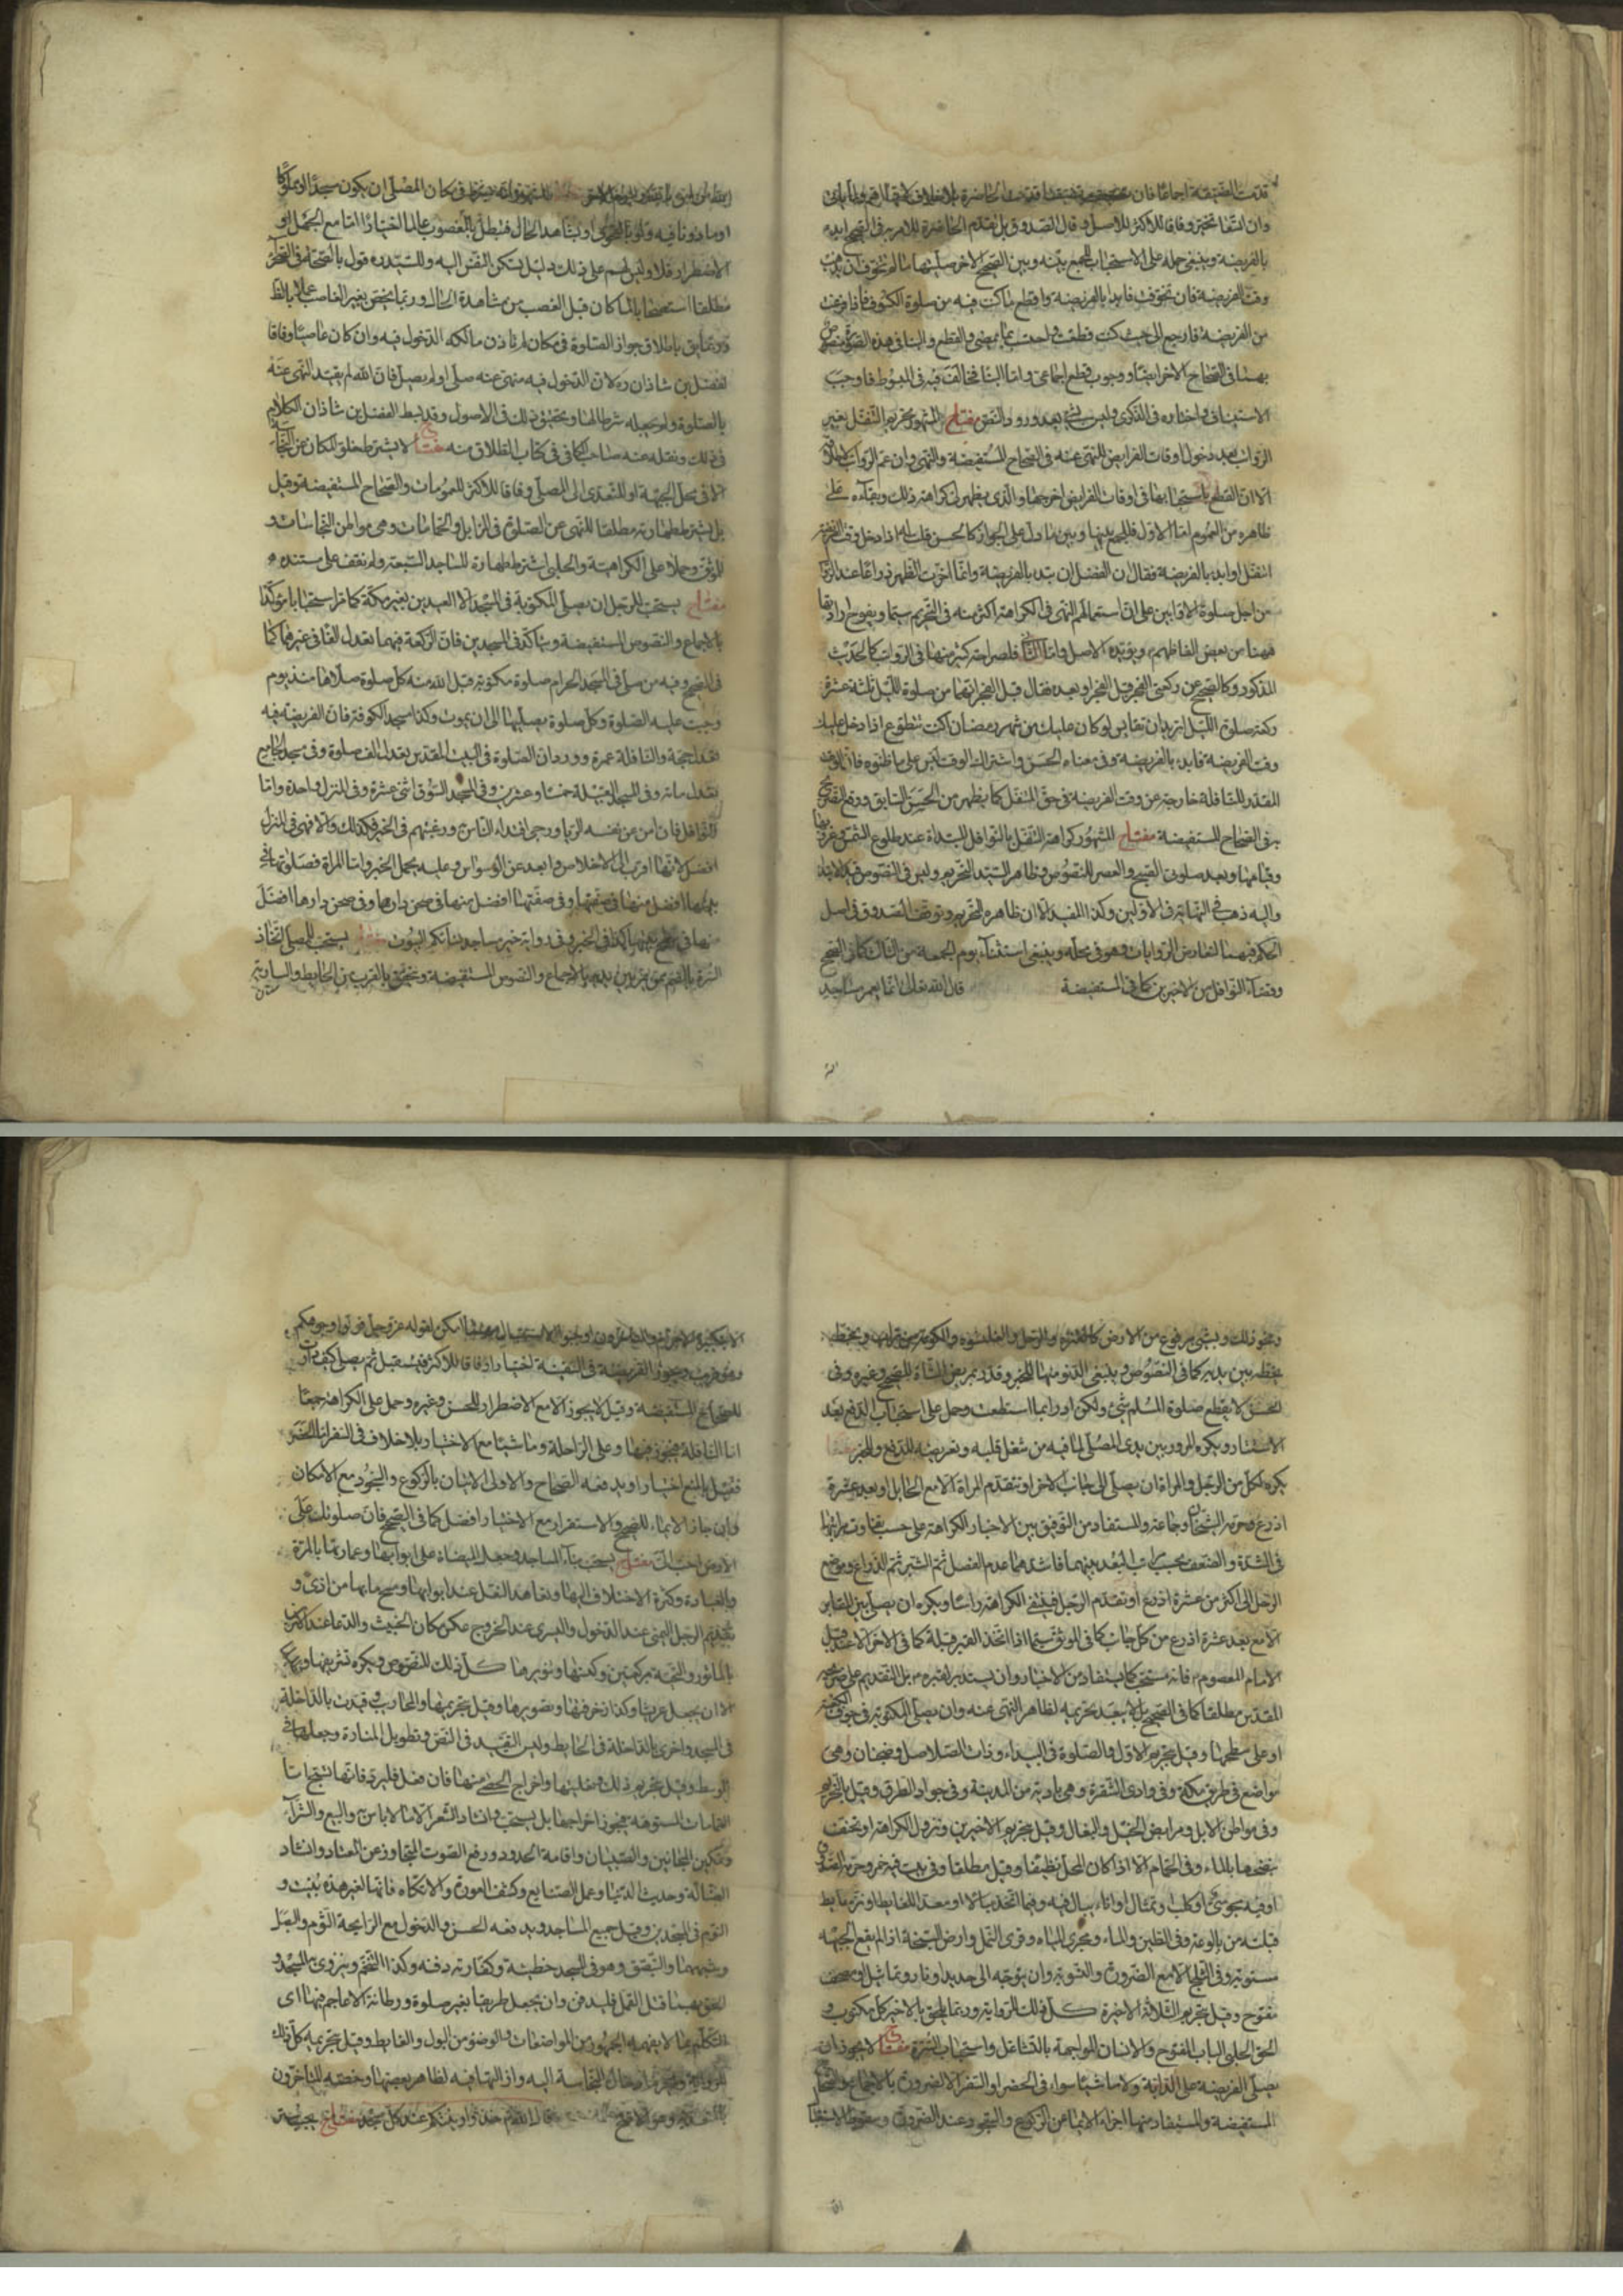 قدمت المضيقة اجماعا فان
وان اتسعتا تخير وفاقا للاكثر للاصل وقال الصدوق بل تقدم الحاضرة للامر به في الصحيح ابدء
بالفريضة وينبغي حمله على الاستحباب للجمع بينه وبين الصحيح الاخر صلها ما لم تتخوف ان يذهب
وقت الفريضة فان تخوفت فابدء بالفريضة واقطع ما كنت فيه من صلوة الكسوف فاذا فرغت
من الفريضة فارجع الى حيث كنت قطعت واحتسب بما مضى والقطع والبنا في هذه الصورة منصوص
بهما في الصحاح الاخر ايضا ووجوب قطع اجماعي واما البنا فخالف فيه في المبسوط فاوجب
الاستيناف واختاره في الذكرى وليس بشيء بعد ورود النص مفتاح المشهور تحريم التنفل بغير
الرواتب بعد دخول اوقات الفرايض للنهي عنه في الصحاح المستفيضة والنهي وان عم الرواتب
الا ان القطع باستحبابها في اوقات الفرايض اخرجها والذي يظهر لي كراهة ذلك وبقاءه على
ظاهره من العموم اما الاول فللجمع بينها وبين ما دل على الجواز كالحسن قلت اذا دخل وقت الفريضة
اتنفل او ابدء بالفريضة فقال ان الفضل ان تبدء بالفريضة وانما اخرت الظهر ذراعا عند الزوال
من اجل صلوة الاوابين على ان استعمالهم النهي في الكراهة اكثر منه في التحريم سيما ويفوح ارادتها
ههنا من بعض الفاظهم ويؤيده الاصل واما الثاني فلصراحة كثير منها في الرواتب كالحديث
المذكور وكالصحيح عن ركعتي الفجر قبل الفجر او بعده فقال قبل الفجر انهما من صلوة الليل ثلثة عشرة
ركعة صلوة الليل اتريد ان تقايس لو كان عليك من شهر رمضان اكنت تتطوع اذا دخل عليك
وقت الفريضة فابدء بالفريضة وفي معناه الحسن واشتراك الوقت ليس على ما ظنوه فان الوقت
المقدر للنافلة خارج عن وقت الفريضة في حق المتنفل كما يظهر من الحسن السابق ووقع التصريح
به في الصحاح المستفيضة مفتاح المشهور كراهة التنفل بالنوافل المبتداة عند طلوع الشمس وغروبها
وقيامها وبعد صلوتي الصبح والعصر للنصوص وظاهر السيد التحريم وليس في النصوص قيد الابتداء
واليه ذهب في النهاية في الاولين وكذا المفيد الا ان ظاهره التحريم وتوقف الصدوق في اصل
الحكم فيهما لتعارض الروايات وهو في محله وينبغي استثناء يوم الجمعة من الثالث كما في الصحيح
وقضاء النوافل من الاخيرين كما في المستفيضة قال الله تعالى انما يعمر مساجد
الله من امن بالله واليوم الاخر يشترط في مكان المصلي ان يكون مسجدا او مملوكا
او ماذونا فيه ولو بالفحوى او بشاهد الحال فتبطل بالمغصوب عالما اختيارا اما مع الجهل او
الاضطرار فلا وليس لهم على ذلك دليل يسكن النفس اليه وللسيد ره قول بالصحة في الصحراء
مطلقا استصحابا لما كان قبل الغصب من مشاهدة الحال وربما يخص بغير الغاصب عملا بالظاهر
وربما يق باطلاق جواز الصلوة في مكان لم ياذن مالكه الدخول فيه وان كان عاصيا وفاقا
لفضل بن شاذان ره لان الدخول فيه منهي عنه صلى او لم يصل فان الله لم يقيد النهي عنه
بالصلوة ولم يجعله شرطا لها وتحقيق ذلك في الاصول وقد بسط الفضل بن شاذان الكلام
في ذلك ونقله عنه صاحب الكافي في كتاب الطلاق منه مفتاح لا يشترط خلو المكان عن النجاسة
الا في محل الجبهة او المتعدي الى المصلي وفاقا للاكثر للعمومات والصحاح المستفيضة وقيل
بل يشترط طهارته مطلقا للنهي عن الصلوة في المزابل والحمامات وهي مواطن النجاسات و
للموثق وحملا على الكراهية والحلبي اشترط طهارة المساجد السبعة ولم نقف على مستنده
مفتاح يستحب للرجل ان يصلي المكتوبة في المسجد الا العيدين بغير مكة كما مر استحبابا مؤكدا
بالاجماع والنصوص المستفيضة ويتاكد في المسجدين فان الركعة فيهما تعدل الفا في غيرهما كما
في الصحيح وفيه من صلى في المسجد الحرام صلوة مكتوبة قبل الله منه كل صلوة صلاها منذ يوم
وجبت عليه الصلوة وكل صلوة يصليها الى ان يموت وكذا مسجد الكوفة فان الفريضة فيه
تعدل حجة والنافلة عمرة وورد ان الصلوة في البيت المقدس تعدل الف صلوة وفي مسجد الجامع
تعدل مائة وفي المسجد القبيلة خمسا وعشرين وفي المسجد السوق اثنى عشرة وفي المنزل واحدة واما
النوافل فان امن من نفسه الريا ورجى اقتداء الناس به ورغبتهم في الخير فكذلك والا فهي في المنزل
افضل لانها اقرب الى الاخلاص وابعد عن الوسواس وعليه يحمل الخبر واما المراة فصلوتها في
بيتها افضل منها في صفتها وفي صفتها افضل منها في صحن دارها وفي صحن دارها افضل
منها في سطح بيتها كذا في الخبر وفي رواية خير مساجد نسائكم البيوت مفتاح يستحب للمصلي اتخاذ
السترة بالضم بين يديه بالاجماع والنصوص المستفيضة وتتحقق بالقرب من الحايط والسارية
ونحو ذلك وبشيء مرفوع من الارض كالعنزة والرحل والقلنسوة والكومة من تراب وبخط
يخطه بين يديه كما في النصوص وينبغي الدنو منها للخبر وقدر بمربض الشاة للصحيح وغيره وفي
الحسن لا يقطع صلوة المسلم شيء ولكن ادراوا ما استطعت وحمل على استحباب الدفع بعد
الاستتار ويكره المرور بين يدي المصلي لما فيه من شغل قلبه وتعريضه للدفع وللخبر مفتاح
يكره لكل من الرجل والمراة ان يصلي الى جانب الاخر او تتقدم المراة الا مع الحايل او بعد عشرة
اذرع وحرمه الشيخان وجماعة والمستفاد من التوفيق بين الاخبار الكراهة على حسب تفاوت مراتبها
في الشدة والضعف بحسب مراتب البعد بينهما فاشدها عدم الفصل ثم الشبر ثم الذراع وموضع
الرحل الى اكثر من عشرة اذرع او تقدم الرجل فينتفي الكراهة راسا ويكره ان يصلي بين المقابر
الا مع بعد عشرة اذرع من كل جانب كما في الموثق سيما اذا اتخذ القبر قبلة كما في الاخر الا عند قبر
الامام المعصوم فانه مستحب كما يستفاد من الاخبار وان يستدبر قبره بل التقديم على ضريحه
المقدس مطلقا كما في الصحيح بل لا يبعد تحريمه لظاهر النهي عنه وان يصلي المكتوبة في جوف الكعبة
او على سطحها وقيل بتحريم الاول والصلوة في البيداء وذات الصلاصل وضجنان وهي
مواضع في طريق مكة وفي وادي الشقرة وهي بادية من المدينة وفي جواد الطرق وقيل بالتحريم
وفي مواطن الابل ومرابض الخيل والبغال وقيل بتحريم الاخيرين وتزول الكراهة او تخفف
بنضحها بالماء وفي الحمام الا اذا كان المحل نظيفا وقيل مطلقا وفي بيت فيه خمر وحرمه الصدوق
او فيه مجوسي او كلب او تمثال او اناء يبال فيه وفيما اتخذ مبالا او معدا للغايط او نز حايط
قبلته من بالوعة وفي الطين والماء ومجرى المياه وقرى النمل وارض السبخة اذا لم يقع الجبهة
مستوية وفي الثلج الا مع الضرورة والتسوية وان يتوجه الى حديد او نار وتماثيل او مصحف
مفتوح وقيل بتحريم الثلاثة الاخيرة كل ذلك للرواية وربما يلحق بالاخير كل مكتوب و
الحق الحلبي الباب المفتوح والانسان المواجهة بالتشاغل واستحباب السترة مفتاح لا يجوز ان
يصلي الفريضة على الدابة ولا ماشيا سواء في الحضر او السفر الا لضرورة بالاجماع والصحاح
المستفيضة والمستفاد منها اجزاء الايماء عن الركوع والسجود عند الضرورة وسقوط الاستقبال
الا بتكبيرة الاحرام امكن لقوله عز وجل فولوا وجوهكم
ويجوز الفريضة في السفينة اختيارا وفاقا للاكثر فيستقبل ثم يصلي كيف دارت
للصحاح المستفيضة وقيل لا يجوز الا مع الاضطرار للحسن وغيره وحمل على الكراهة جمعا
اما النافلة فيجوز فيها وعلى الراحلة وماشيا مع الاختيار بلا خلاف في السفر اما الحضر
فقيل بالمنع اختيارا ويدفعه الصحاح والاولى الاتيان بالركوع والسجود مع الامكان
وان جاز الايماء للصحيح والاستقرار مع الاختيار افضل كما في الصحيح فان صلوتك على
الارض احب الي مفتاح يستحب بناء المساجد وجعل الميضاة على ابوابها وعمارتها بالمرمة
وبالعبادة وكثرة الاختلاف اليها وتعاهد النعل عند ابوابها ومسح ما بها من اذى و
تقديم الرجل اليمنى عند الدخول واليسرى عند الخروج عكس مكان الخبيث والدعا عند كليهما
بالماثور والتحية بركعتين وكنسها وتنويرها كل ذلك للنصوص ويكره تشريفها
الا ان يجعل عريشا وكذا زخرفتها وتصويرها وقيل بتحريمها والمحاريب وقيدت بالداخلة
في المسجد واخرى بالداخلة في الحايط وليس القيد في النص وتطويل المنارة وجعلها في
الوسط وقيل بتحريم ذلك وتعليتها واخراج الحصى منها فان فعل فليرده فانها تسبح اما
القمامات المستوهة فيجوز اخراجها بل يستحب وانشاد الشعر الا ما لا باس به والبيع والشراء
وتمكين المجانين والصبيان واقامة الحدود ورفع الصوت المتجاوز عن المعتاد وانشاد
الضالة وحديث الدنيا وعمل الصنايع وكشف العورة والاتكاء فانها لغير هذه بنيت و
النوم في المسجدين وقيل جميع المساجد ويدفعه الحسن والدخول مع الرايحة الثوم والبصل
وشبههما والتبصق وهو في المسجد خطيئة وكفارته دفنه وكذا التنخم
قتل القمل فليدفن وان يجعل طريقا بغير صلوة ورطانة الاعاجم فيها اي
التكلم بما لا يفهمه الجمهور من المواضعات والوضوء من البول والغايط وقيل بتحريمه كل ذلك
للرواية وادخال النجاسة اليه وازالتها فيه لظاهر بعضها وخصه المتاخرون
بالمتعدية وهو الاصح خذوا زينتكم عند كل مسجد مفتاح يجب ستر